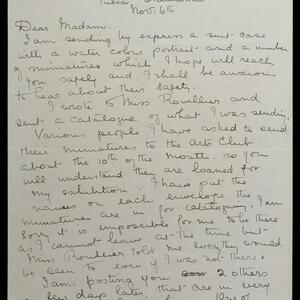 Nov. 6th
Dear Madam.
I am sending by express a suit case
with a water colour portrait and a number
of miniatures which I hope will reach
you safely and I shall be anxious
to hear about their safety.
I wrote to Miss Roullier and
sent a catalogue of what I was sending.
Various people I have asked to send
their miniatures to the Arts Club.
about the 10th of the month. so you
will understand they are loaned for
my exhibition. I have put the
names on each envelope the
miniatures are in for cataloguing. I am
sorry it is impossible for me to be there
as I cannot leave at the time. but as
Miss Roullier told me everything would
be seen to even if I was not there.
I am posting you 2 others
a few days later that are in very